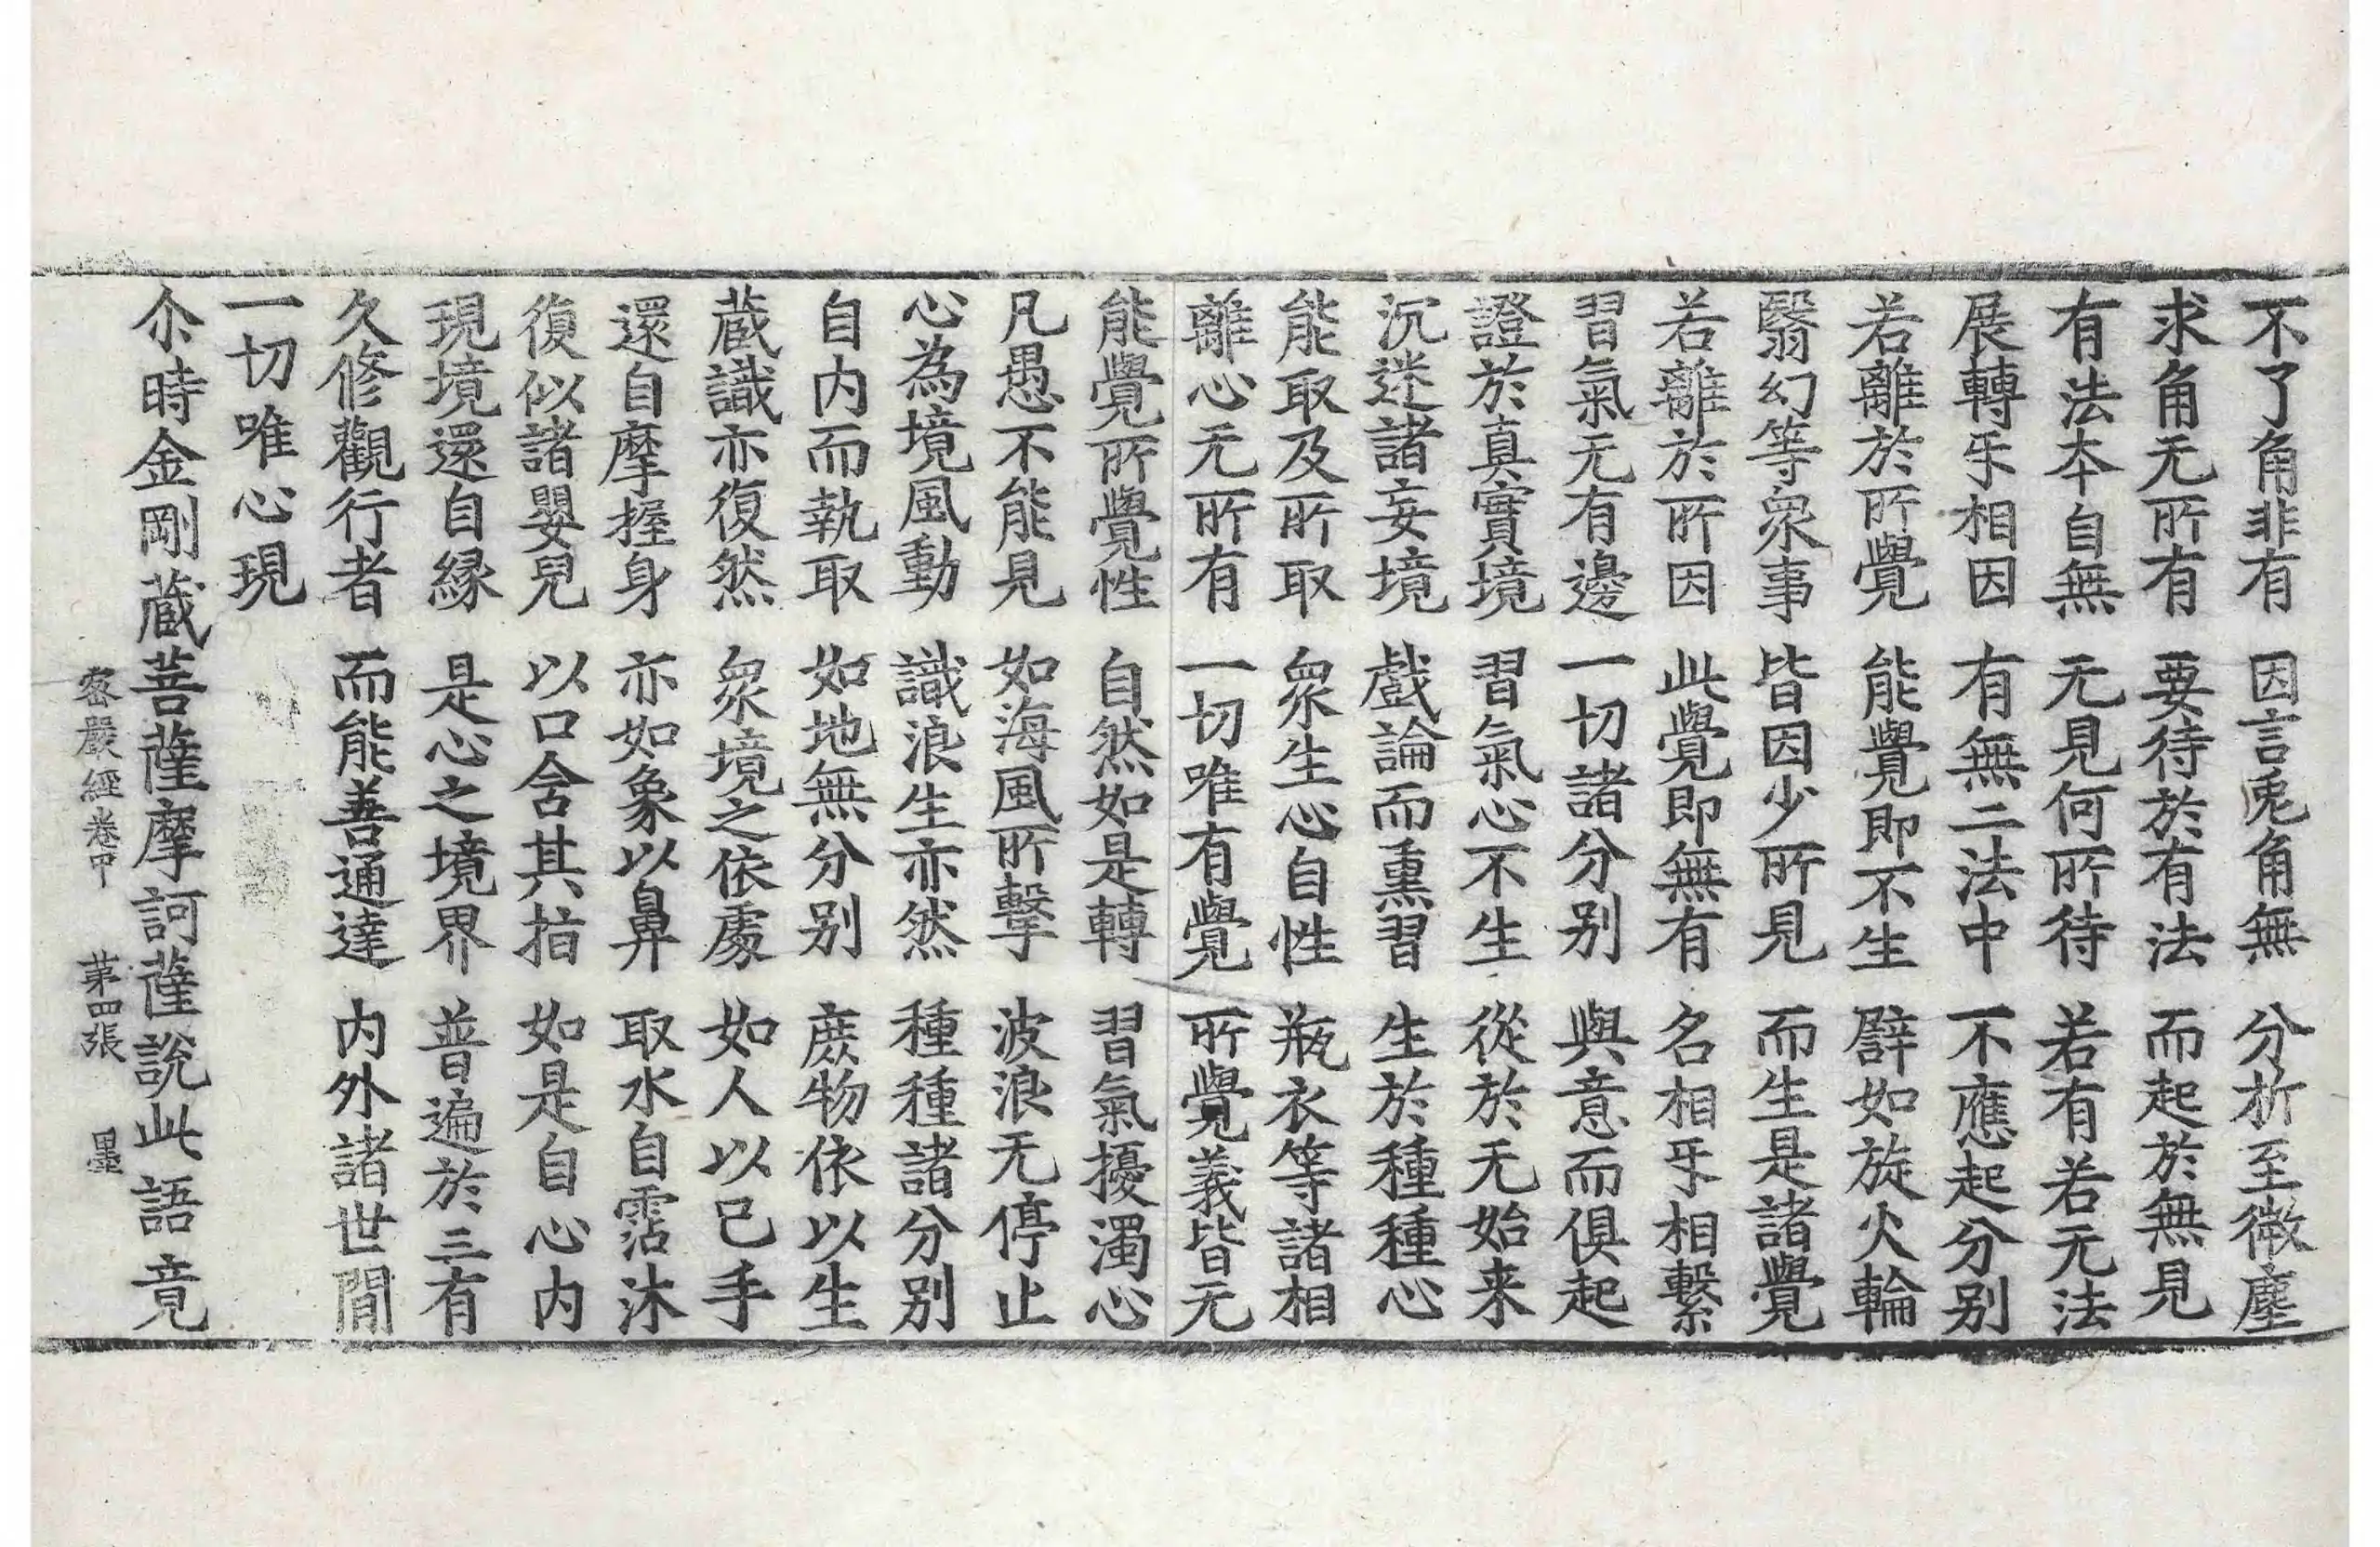 不了角非有 因言兎角無 分析至微塵
求角无所有 要待於有法 而起於無見
有法本自無 无見何所待 若有若无法
展轉㸦相因 有無二法中 不應起分别
若離於所覺 能覺即不生 譬如旋火輪
翳幻等衆事 皆因少所見 而生是諸覺
若離於所因 此覺即無有 名相㸦相繫
習氣无有邊 一切諸分别 與意而俱起
證於真實境 習氣心不生 從於无始来
沉迷諸妄境 戲論而熏習 生於種種心
能取及所取 衆生心自性 瓶衣等諸相
離心无所有 一切唯有覺 所覺義皆无
能覺所覺性 自然如是轉 習氣擾濁心
凡愚不能見 如海風所擊 波浪无停止
心為境風動 識浪生亦然 種種諸分别
自内而執取 如地無分别 庶物依以生
蔵識亦復然 衆境之依處 如人以己手
還自摩捉身 亦如象以鼻 取水自霑沐
復似諸嬰兒 以口含其指 如是自心内
現境還自縁 是心之境界 普遍於三有
久修觀行者 而能善通達 内外諸世間
一切唯心現
尒時金剛蔵菩薩摩訶薩說此語竟
密嚴經卷中 苐四張 墨